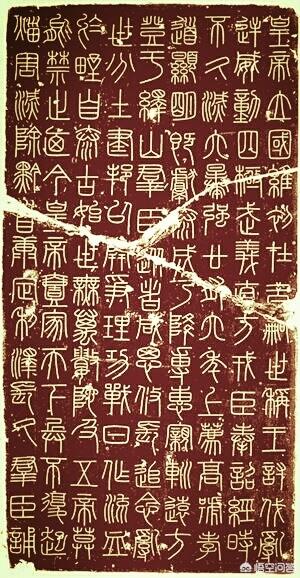 皇帝立國維初在昔嗣世稱王討伐亂
逆威動四極武義直方戎臣奉詔經時
不久滅六暴強廿有六年上薦高號孝
道顯明既獻泰成乃降專惠親巡遠方
登于繹山群臣從者咸思攸長追念亂
世分土建邦以開爭理功戰日作流血
於野自泰古始世無萬數陀及五帝莫
能禁止廼今皇帝壹家天下兵不復起
災害滅除黔首康定利澤長久群臣誦
悟空问答